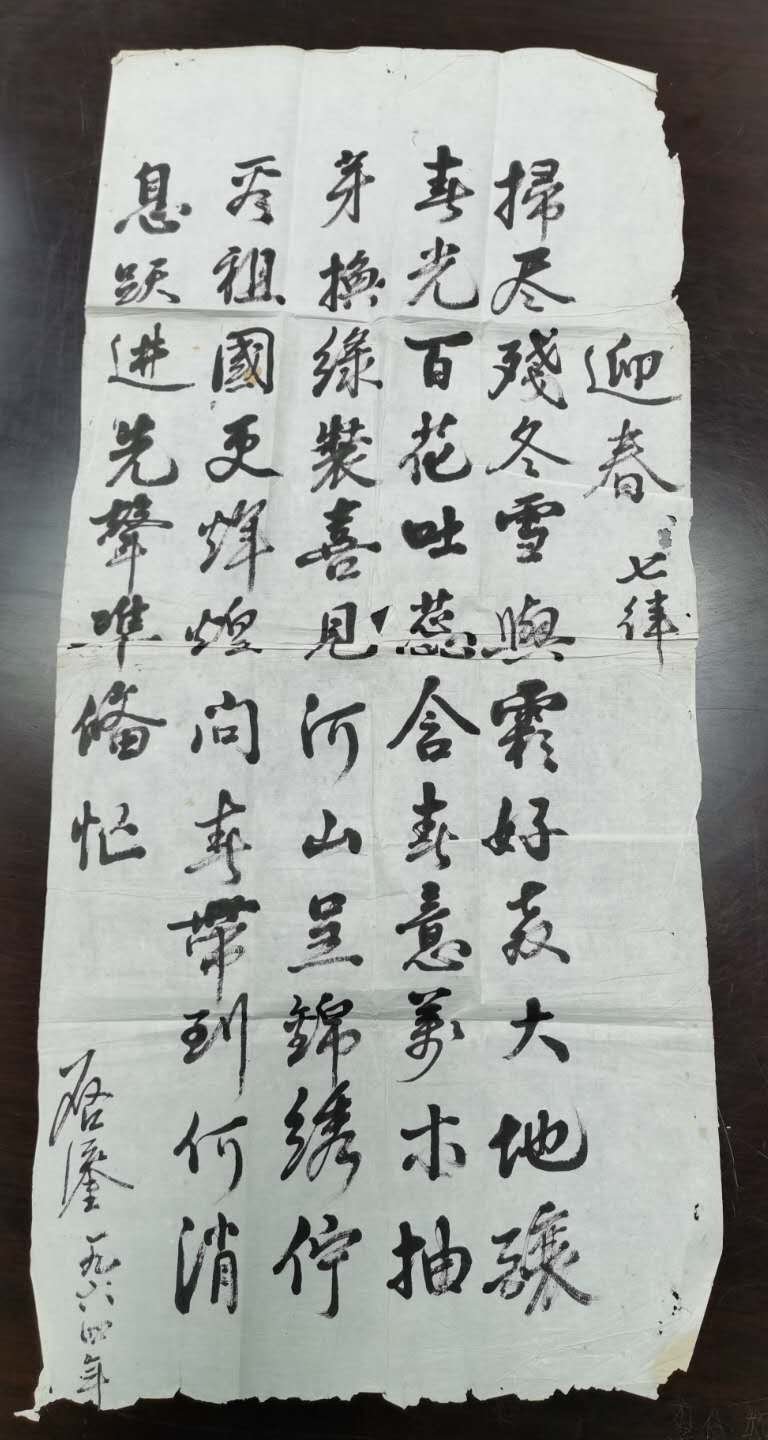 迎春 七律
掃尽殘冬雪與霜好教大地讓
春光百花吐蕊含春意萬木抽
芽換綠裝喜見河山呈錦綉佇
看祖國更煇煌问春帶到何消
息跃进先聲准備忙
一九六四年